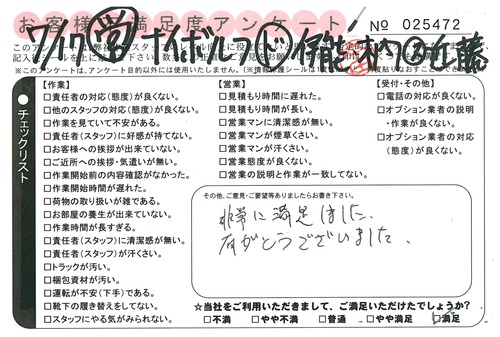 お客様満足度アンケート
No 025472
7/17 営 ナイボル 伊能 近藤
チェックリスト
【作業】
□責任者の対応(態度)が良くない。
□他のスタッフの対応(態度)が良くない。
□作業を見ていて不安がある。
□責任者(スタッフ)に好感が持てない。
□お客様への挨拶が出来ていない。
□ご近所への挨拶・気遣いが無い。
□作業開始前の内容確認がなかった。
□作業開始時間が遅れた。
□荷物の取り扱いが雑である。
□お部屋の養生が出来ていない。
□作業時間が長すぎる。
□責任者(スタッフ)に清潔感が無い。
□責任者(スタッフ)が汗くさい。
□トラックが汚い。
□梱包資材が汚い。
□運転が不安(下手)である。
□靴下の履き替えをしてない。
□スタッフにやる気がみられない。
【営業】
□見積もり時間に遅れた。
□見積もり時間が長い。
□営業マンに清潔感が無い。
□営業マンが煙草くさい。
□営業マンが汗くさい。
□営業態度が良くない。
□営業の説明と作業が一致してない。
【受付・その他】
□電話の対応が良くない。
□オプション業者の説明
・作業が良くない。
□オプション業者の対応
(態度)が良くない。
その他、ご意見・ご要望等ありましたらお書き下さい。
非常に満足しました。
ありがとうございました。
☆当社をご利用いただきまして、ご満足いただけたでしょうか?
□不満 □やや不満 □普通 □やや満足 □満足